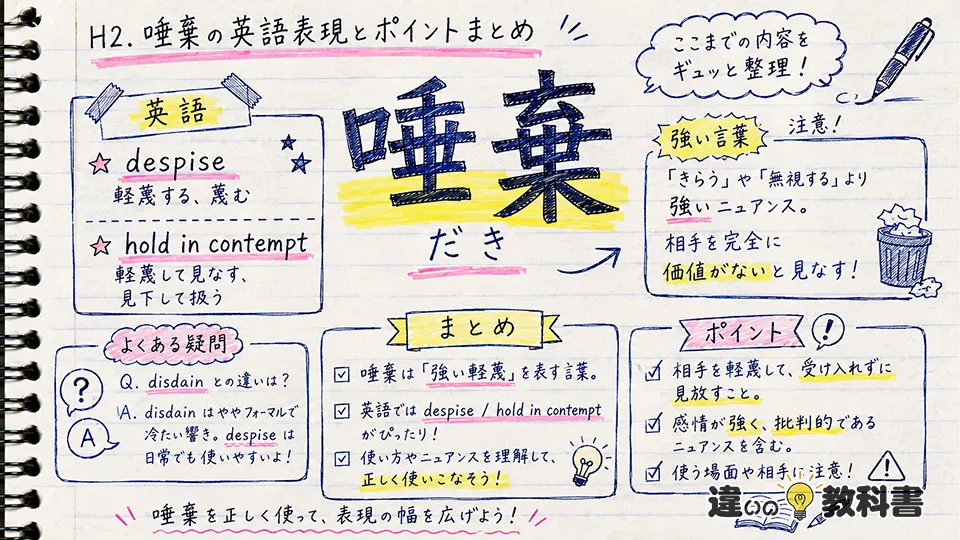 H2. 唾棄の英語表現とポイントまとめ
ここまでの内容を
ギュッと整理！
英語
despise
軽蔑する、蔑む
hold in contempt
軽蔑して見なす、
見下して扱う
唾棄
だき
強い言葉
注意！
「きらう」や「無視する」より
強いニュアンス。
相手を完全に
価値がないと見なす！
よくある疑問
?
Q. disdain との違いは？
A
A. disdain はややフォーマルで
冷たい響き。despise は
日常でも使いやすいよ！
まとめ
唾棄は「強い軽蔑」を表す言葉。
英語では despise / hold in contempt
がぴったり！
使い方やニュアンスを理解して、
正しく使いこなそう！
ポイント
!
相手を軽蔑して、受け入れずに
見放すこと。
感情が強く、批判的である
ニュアンスを含む。
使う場面や相手に注意！
!
唾棄を正しく使って、表現の幅を広げよう！
違いの教科書